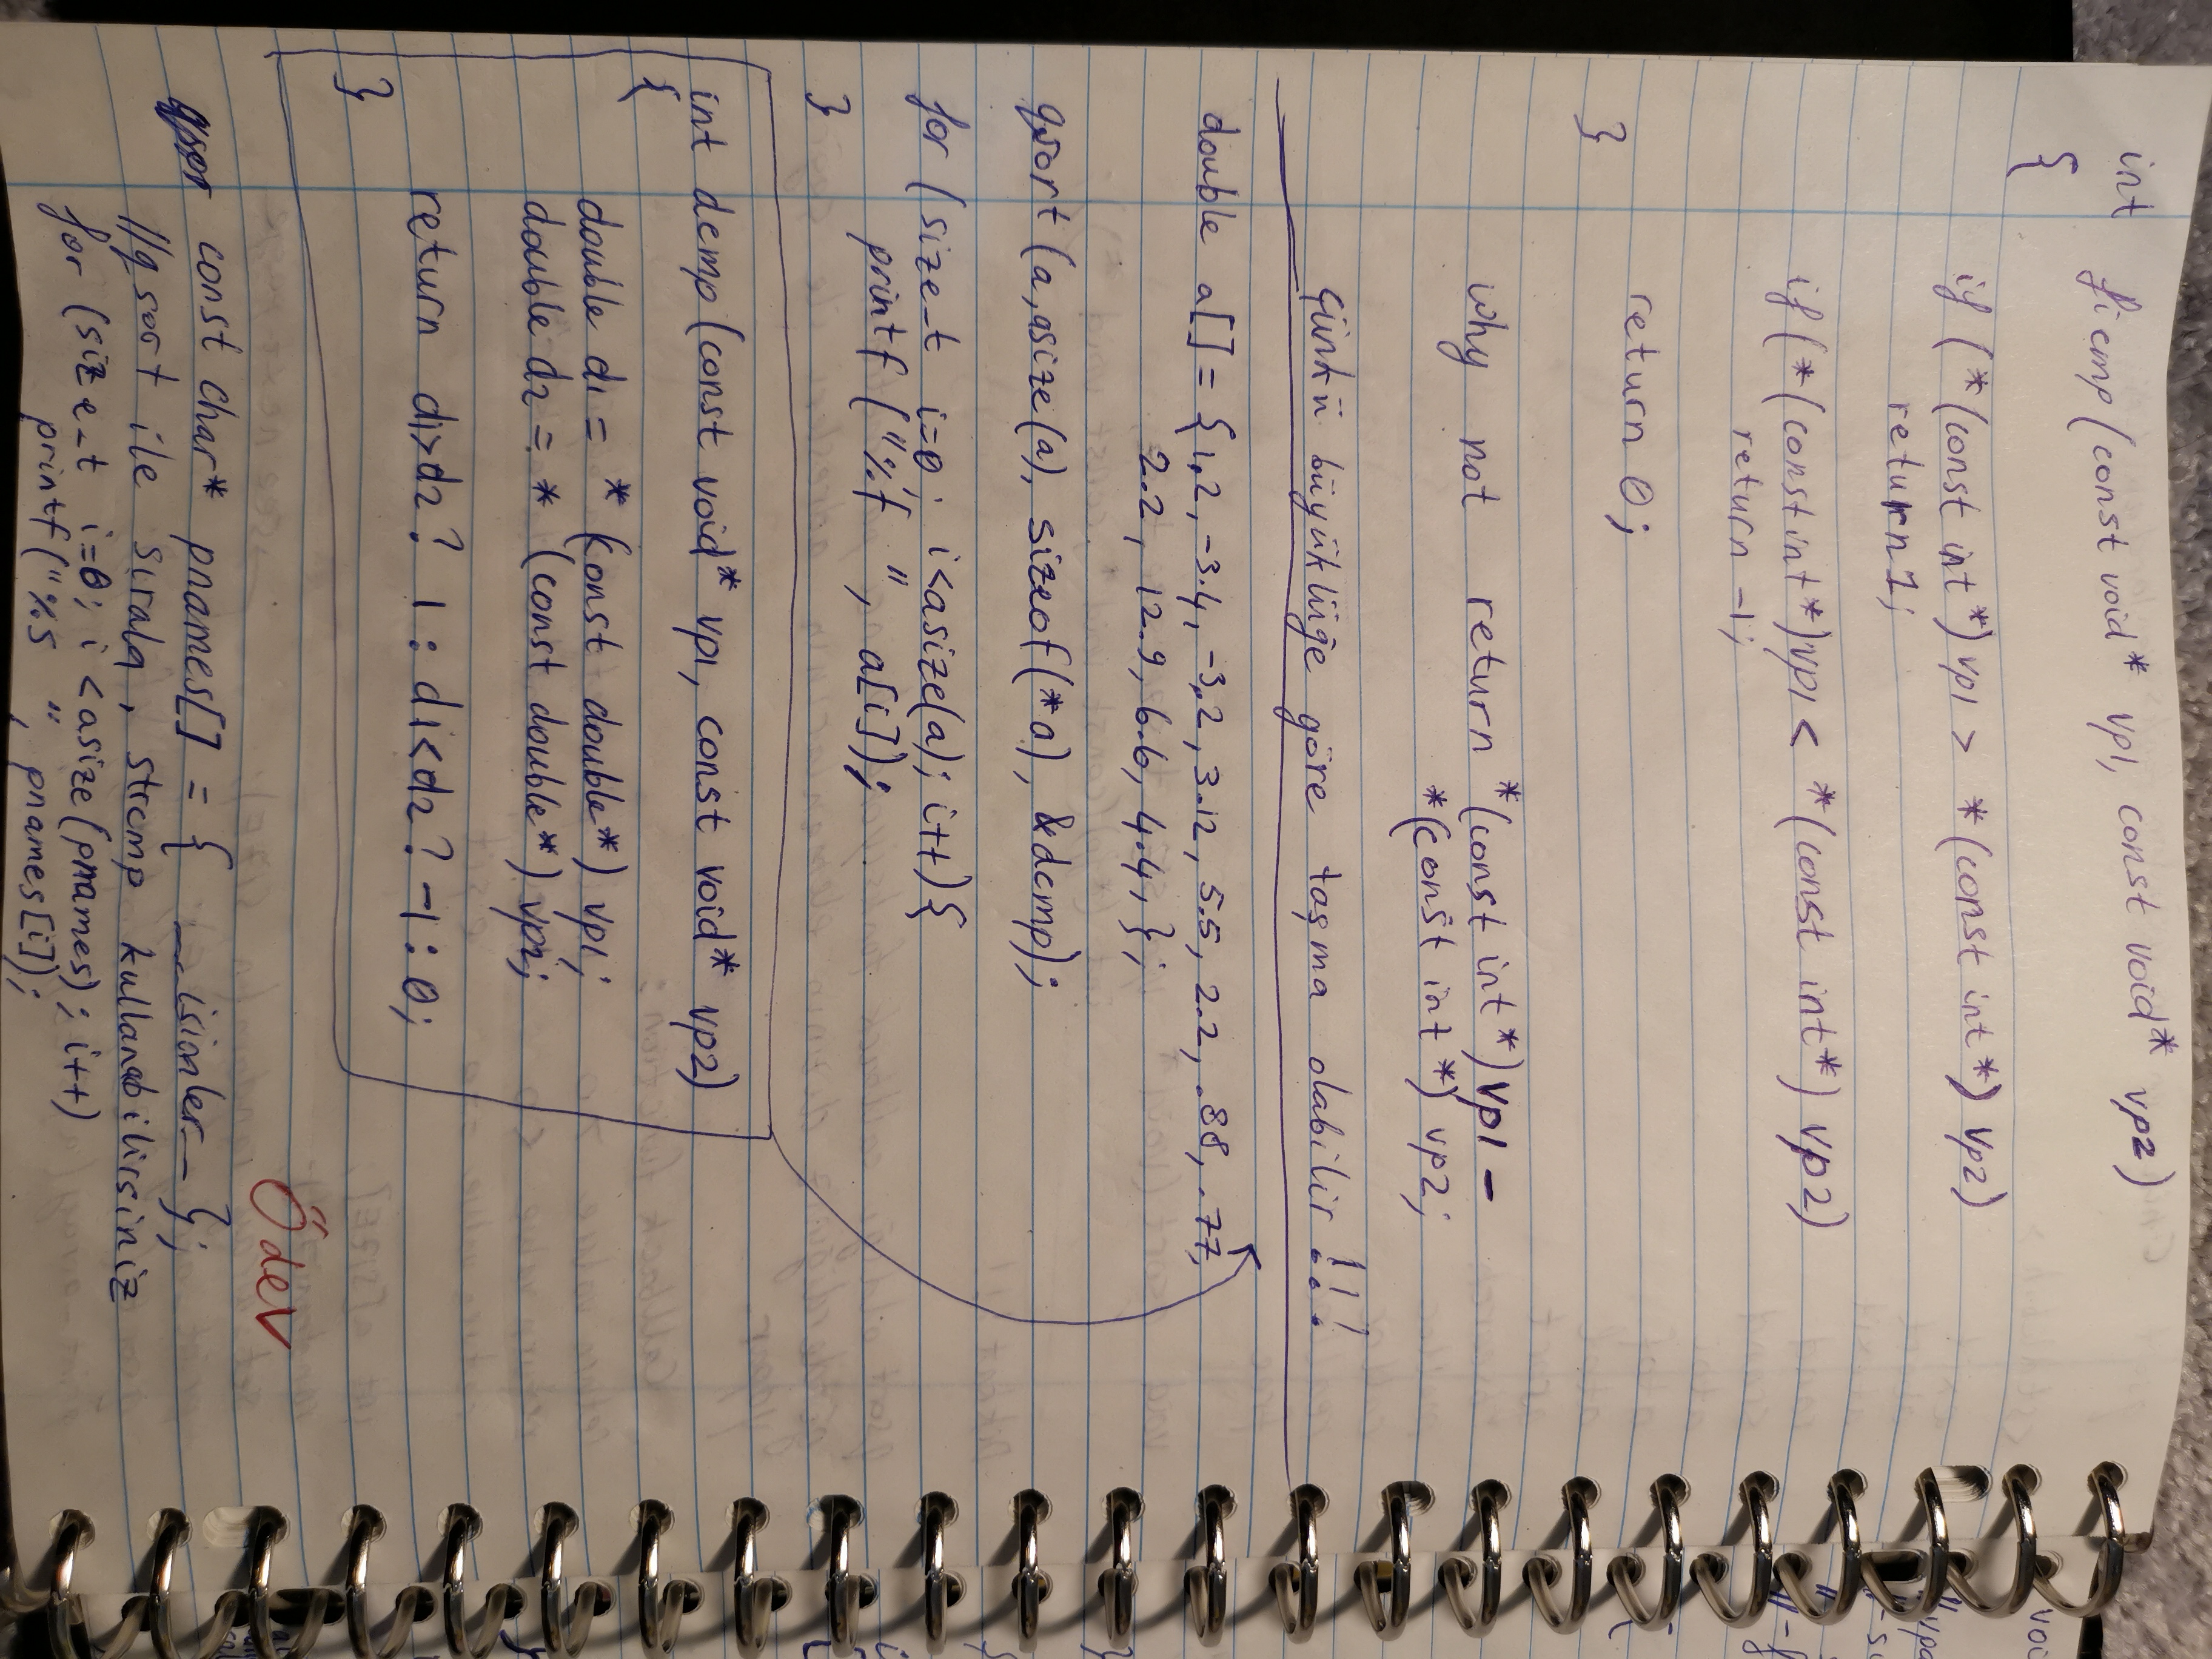 int ficmp(const void* vp1, const void* vp2)
{
if (*(const int*)vp1 > *(const int*) vp2)
return 1;
if(*(const int*)vp1 < *(const int*) vp2)
return -1;
return 0;
}
why not return *(const int*)vp1 -
*(const int*) vp2;
çünkü büyüklüğe göre taşma olabilir !!!
double a[] = {1.2, -3.4, -3.2, 3.12, 5.5, 2.2, .88, .77,
2.2, 12.9, 6.6, 4.4, };
qsort (a, asize(a), sizeof(*a), &dcmp);
for (size_t i=0; i<asize(a); i++){
printf ("%f ", a[i]);
}
int dcmp (const void* vp1, const void* vp2)
{
double d1 = * (const double*) vp1;
double d2 = * (const double*) vp2;
return d1>d2? 1 : d1<d2? -1 : 0;
}
Ödev
const char* pnames[] = { __isimler__ };
//qsort ile sırala, strcmp kullanabilirsiniz
for (size_t i=0; i <asize(pnames); i++)
printf("%s ", pnames[i]);